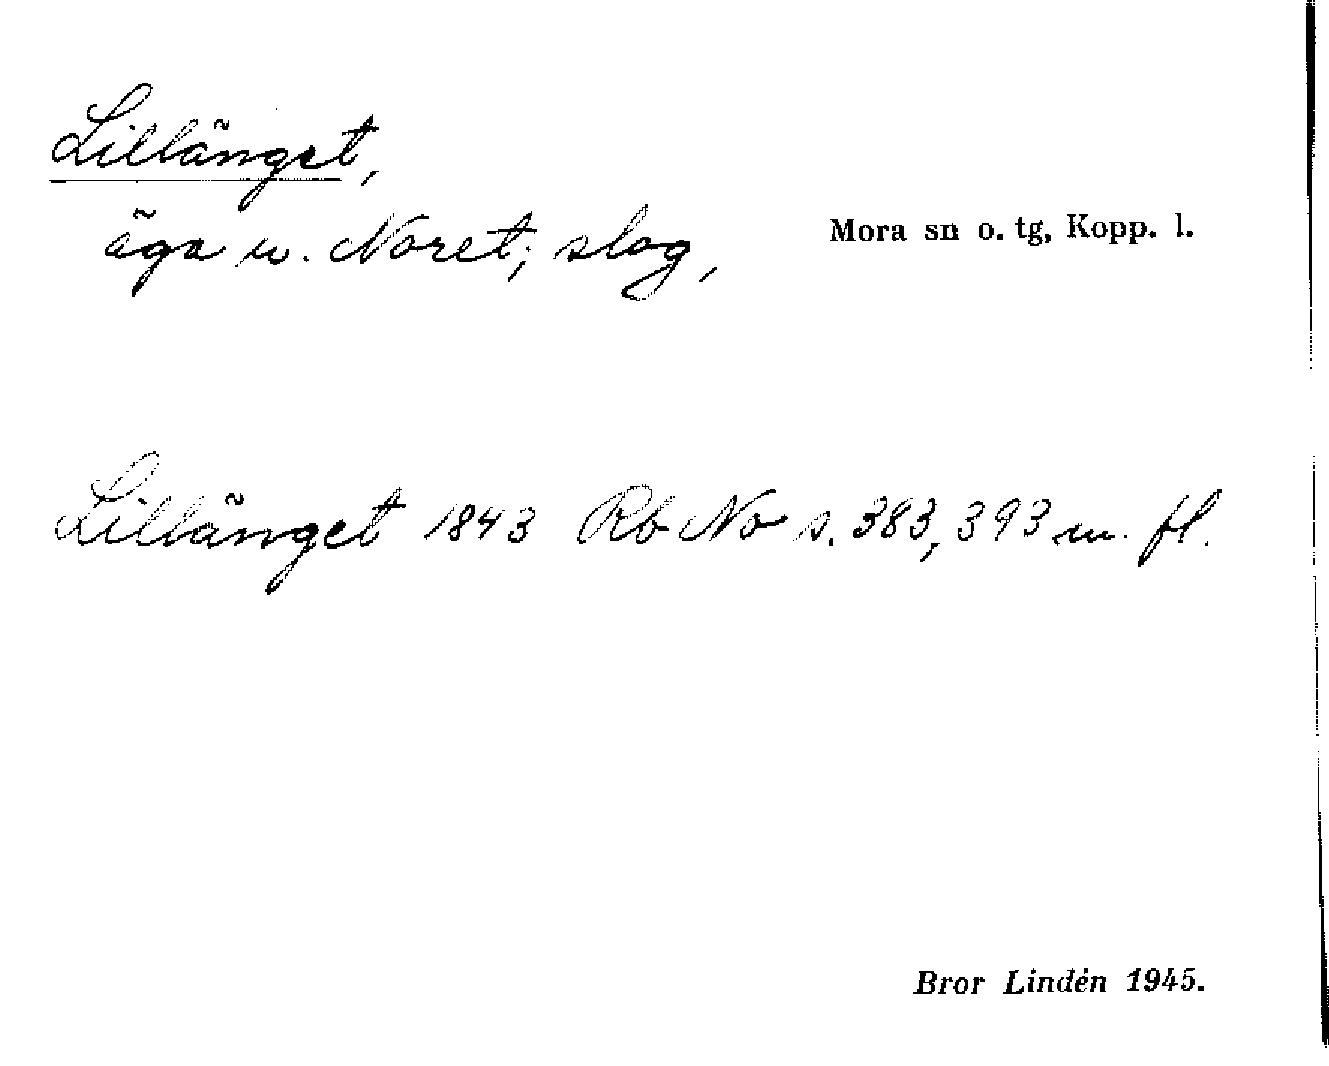 Lillänget,
äga u. Noret; slog,
Mora sn o. tg, Kopp. l.
Lillänget 1843 Rb No s. 383, 393 m. fl.
Bror Lindén 1945.